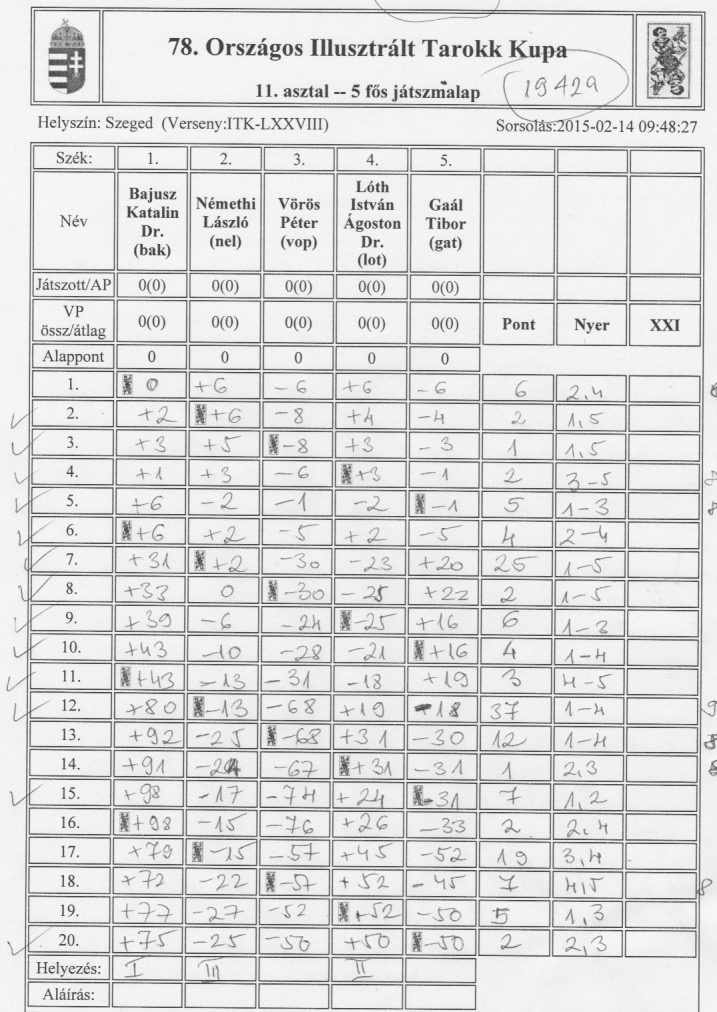 78. Országos Illusztrált Tarokk Kupa
11. asztal -- 5 fős játszmalap
19429
Helyszín: Szeged (Verseny:ITK-LXXVIII) Sorsolás:2015-02-14 09:48:27
Szék: 1. 2. 3. 4. 5.
Név Bajusz Katalin Dr. (bak) Némethi László (nel) Vörös Péter (vop) Lóth István Ágoston Dr. (lot) Gaál Tibor (gat)
Játszott/AP 0(0) 0(0) 0(0) 0(0) 0(0)
VP össz/átlag 0(0) 0(0) 0(0) 0(0) 0(0) Pont Nyer XXI
Alappont 0 0 0 0 0
1. 0 +6 -6 +6 -6 6 2,4
2. +2 +6 -8 +4 -4 2 1,5
3. +3 +5 -8 +3 -3 1 1,5
4. +1 +3 -6 +3 -1 2 3-5 8
5. +6 -2 -1 -2 -1 5 1-3 8
6. +6 +2 -5 +2 -5 4 2-4
7. +31 +2 -30 -23 +20 25 1-5
8. +33 0 -30 -25 +22 2 1-5
9. +39 -6 -24 -25 +16 6 1-3
10. +43 -10 -28 -21 +16 4 1-4
11. +43 -13 -31 -18 +19 3 4-5
12. +80 -13 -68 +19 -18 37 1-4 9
13. +92 -25 -68 +31 -30 12 1-4 8
14. +91 -24 -67 +31 -31 1 2,3 8
15. +98 -17 -74 +24 -31 7 1,2
16. +98 -15 -76 +26 -33 2 2,4
17. +79 -15 -57 +45 -52 19 3,4
18. +72 -22 -57 +52 -45 7 4,5 8
19. +77 -27 -52 +52 -50 5 1,3
20. +75 -25 -50 +50 -50 2 2,3
Helyezés: I III II
Aláírás: